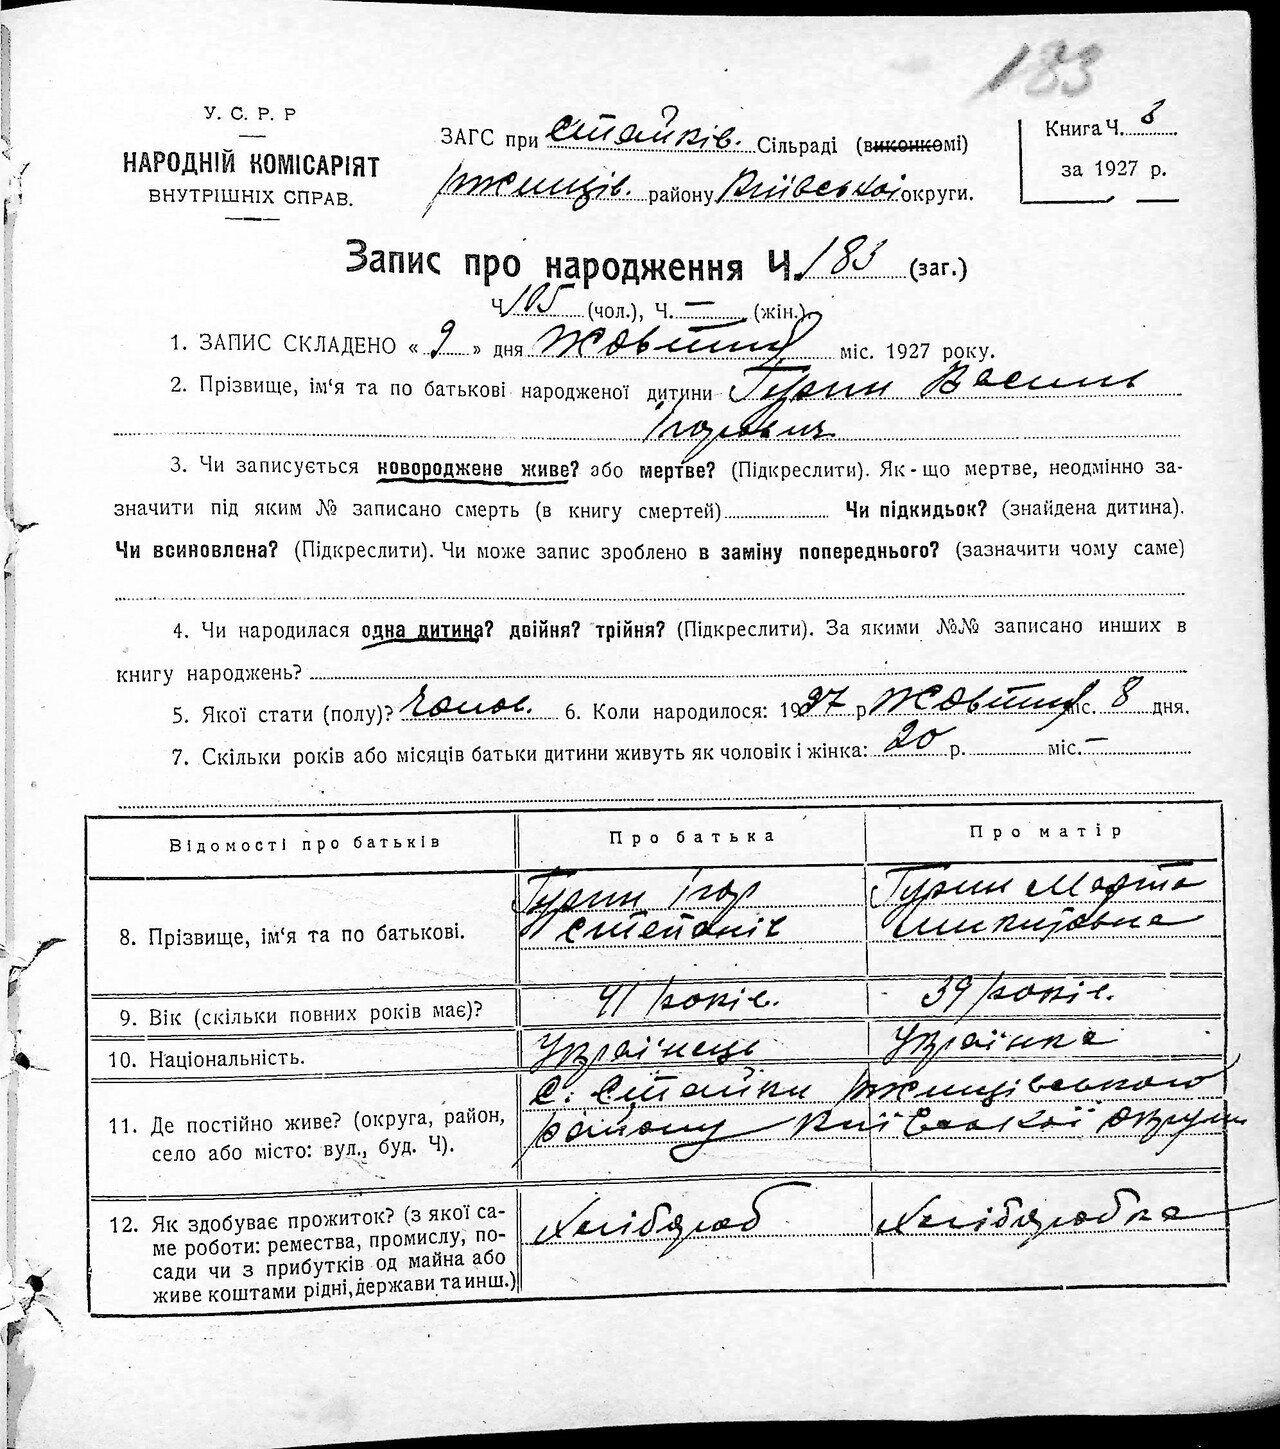 183
У. С. Р. Р
НАРОДНІЙ КОМІСАРІЯТ
ВНУТРІШНІХ СПРАВ.
ЗАГС при Стайків. Сільраді (виконкомі)
Ржищів. району Київської округи.
Книга Ч. 3
за 1927 р.
Запис про народження Ч. 183 (заг.)
Ч 105 (чол.), Ч. — (жін.)
1. ЗАПИС СКЛАДЕНО « 9 » дня Жовтня міс. 1927 року.
2. Прізвище, ім'я та по батькові народженої дитини Гурин Василь
Ігорович
3. Чи записується новороджене живе? або мертве? (Підкреслити). Як-що мертве, неодмінно за-
значити під яким № записано смерть (в книгу смертей) Чи підкидьок? (знайдена дитина).
Чи всиновлена? (Підкреслити). Чи може запис зроблено в заміну попереднього? (зазначити чому саме)
4. Чи народилася одна дитина? двійня? трійня? (Підкреслити). За якими №№ записано инших в
книгу народжень?
5. Якої стати (полу)? чолов. 6. Коли народилося: 1927 р Жовтня міс. 8 дня.
7. Скільки років або місяців батьки дитини живуть як чоловік і жінка: 20 р. міс. —
Відомості про батьків Про батька Про матір
8. Прізвище, ім'я та по батькові. Гурин Ігор Степанів Гурин Марта Микитовна
9. Вік (скільки повних років має)? 41 років. 39 років.
10. Національність. Українець Українка
11. Де постійно живе? (округа, район,
село або місто: вул., буд. Ч).
С. Стайки Ржищівського
району Київської округи
12. Як здобуває прожиток? (з якої са-
ме роботи: ремества, промислу, по-
сади чи з прибутків од майна або
живе коштами рідні, держави та инш.)
Хлібороб Хліборобка